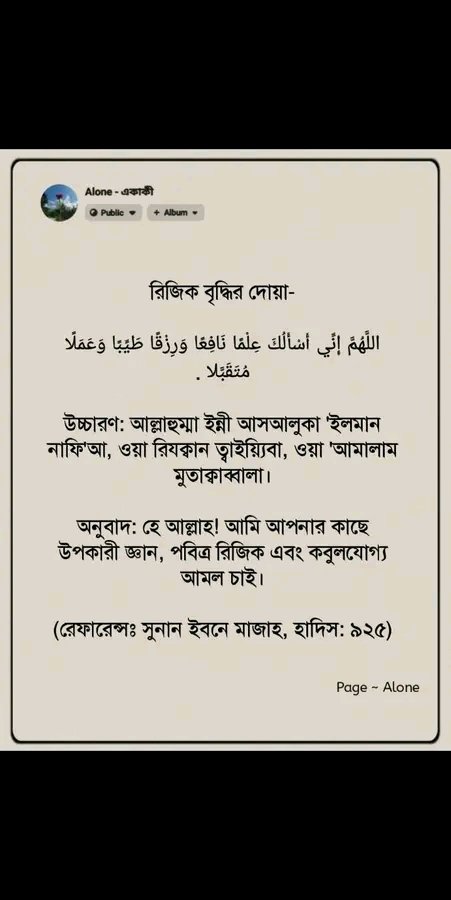 Alone - একাকী
Public + Album
রিজিক বৃদ্ধির দোয়া-
اللَّهُمَّ إِنِّي أَسْأَلُكَ عِلْمًا نَافِعًا وَرِزْقًا طَيِّبًا وَعَمَلًا
مُتَقَبَّلًا .
উচ্চারণ: আল্লাহুম্মা ইন্নী আসআলুকা 'ইলমান
নাফি'আ, ওয়া রিযক্বান ত্বাইয়্যিবা, ওয়া 'আমালাম
মুতাক্বাব্বালা।
অনুবাদ: হে আল্লাহ! আমি আপনার কাছে
উপকারী জ্ঞান, পবিত্র রিজিক এবং কবুলযোগ্য
আমল চাই।
(রেফারেন্সঃ সুনান ইবনে মাজাহ, হাদিস: ৯২৫)
Page ~ Alone